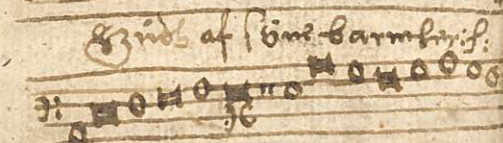 Gudh af syne barmher: h: